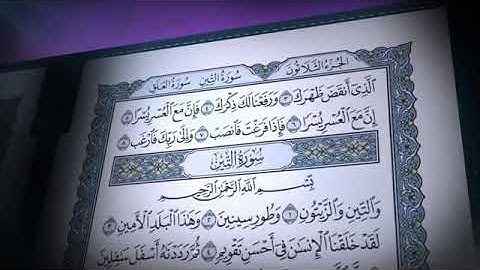 الجزء الثلاثون سورة التين سورة العلق
ٱلَّذِىٓ أَنقَضَ ظَهْرَكَ ٣ وَرَفَعْنَا لَكَ ذِكْرَكَ ٤ فَإِنَّ مَعَ ٱلْعُسْرِ يُسْرًا ٥
إِنَّ مَعَ ٱلْعُسْرِ يُسْرًا ٦ فَإِذَا فَرَغْتَ فَٱنصَبْ ٧ وَإِلَىٰ رَبِّكَ فَٱرْغَب ٨
سُورَةُ التِّينِ
بِسْمِ ٱللَّهِ ٱلرَّحْمَٰنِ ٱلرَّحِيمِ
وَٱلتِّينِ وَٱلزَّيْتُونِ ١ وَطُورِ سِينِينَ ٢ وَهَٰذَا ٱلْبَلَدِ ٱلْأَمِينِ ٣
لَقَدْ خَلَقْنَا ٱلْإِنسَٰنَ فِىٓ أَحْسَنِ تَقْوِيمٍ ٤ ثُمَّ رَدَدْنَٰهُ أَسْفَلَ سَٰفِلِينَ